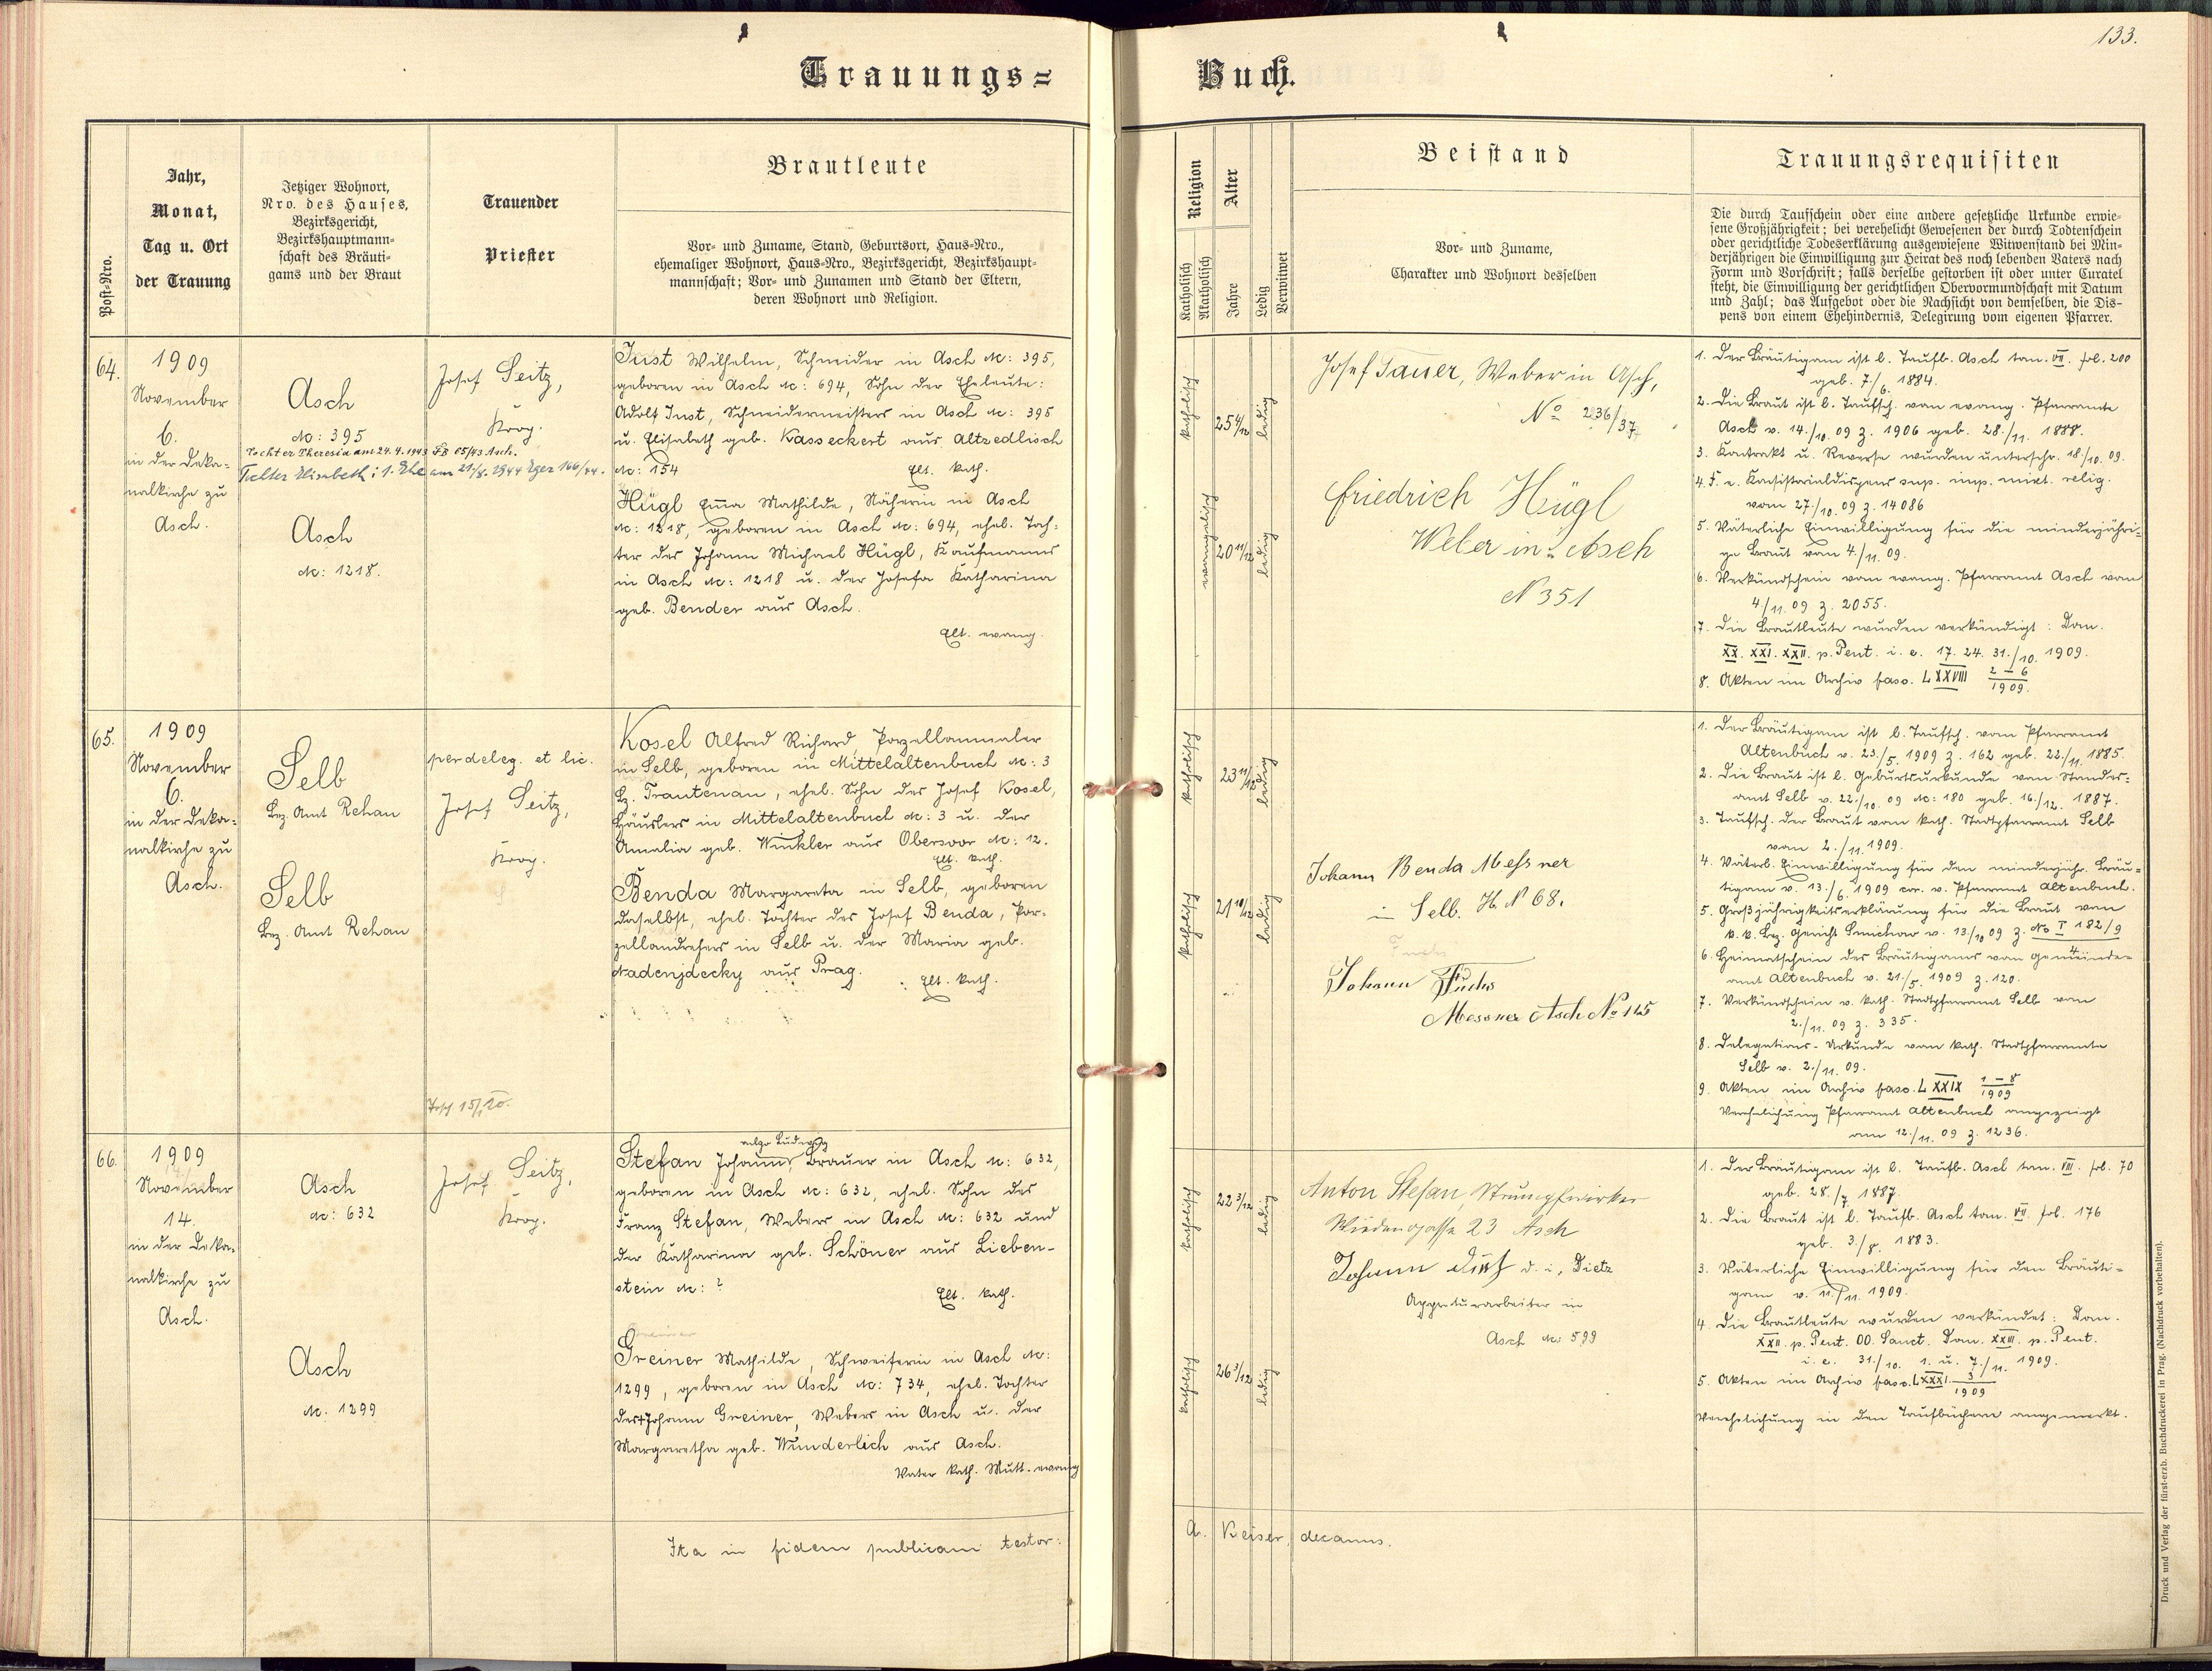 133.
Trauungs=
Buch.
Post-Nro.
Jahr,
Monat,
Tag u. Ort
der Trauung
Jetziger Wohnort,
Nro. des Hauses,
Bezirksgericht,
Bezirkshauptmann=
schaft des Bräuti=
gams und der Braut
Trauender
Priester
Brautleute
Vor- und Zuname, Stand, Geburtsort, Haus-Nro.,
ehemaliger Wohnort, Haus-Nro., Bezirksgericht, Bezirkshaupt=
mannschaft; Vor- und Zunamen und Stand der Eltern,
deren Wohnort und Religion.
Religion
Katholisch
Akatholisch
Alter
Jahre
Ledig
Verwitwet
Beistand
Vor- und Zuname,
Charakter und Wohnort desselben
Trauungsrequisiten
Die durch Taufschein oder eine andere gesetzliche Urkunde erwie=
sene Großjährigkeit; bei verehelicht Gewesenen der durch Todtenschein
oder gerichtliche Todeserklärung ausgewiesene Witwenstand bei Min=
derjährigen die Einwilligung zur Heirat des noch lebenden Vaters nach
Form und Vorschrift; falls derselbe gestorben ist oder unter Curatel
steht, die Einwilligung der gerichtlichen Obervormundschaft mit Datum
und Zahl; das Aufgebot oder die Nachsicht von demselben, die Dis=
pens von einem Ehehindernis, Delegirung vom eigenen Pfarrer.
64.
1909
November
6.
in der Deka=
nalkirche zu
Asch.
Asch
No: 395
Tochter Theresia am 24.4.1943 FB 05/43 Asch.
Tochter Elisabeth: 1. Ehe am 21/8. 1944 Eger 166/44.
Asch
No: 1218.
Josef Seitz,
Koop.
Just Wilhelm, Schneider in Asch No: 395,
geboren in Asch No: 694, Sohn der Eheleute:
Adolf Just, Schneidermeisters in Asch No: 395
u. Elisabeth geb. Kasseckert aus Altzedlisch
No: 154
Elt. kath.
Hügl Emma Mathilde, Näherin in Asch
No: 1218, geboren in Asch No: 694, ehel. Toch=
ter des Johann Michael Hügl, Kaufmanns
in Asch No: 1218 u. der Josefa Katharina
geb. Bender aus Asch.
Elt. evang.
katholisch
25 4/12
ledig
evangelisch
20 11/12
ledig
Josef Sauer, Weber in Asch,
No 236/37
Friedrich Hügl
Weber in Asch
N 351
1. Der Bräutigam ist l. Taufb. Asch tom. VII. fol. 200
geb. 7./6. 1884.
2. Die Braut ist l. Taufsch. vom evang. Pfarramte
Asch v. 14./10. 09 Z. 1906 geb. 28./11. 1888.
3. Kontrakt u. Reverse wurden unterschr. 18/10. 09.
4. F. e. Konsistorialdispens sup. imp. mixt. relig.
vom 27./10. 09 Z. 14086
5. Väterliche Einwilligung für die minderjähri=
ge Braut vom 4./11. 09.
6. Verkündschein vom evang. Pfarramt Asch vom
4./11. 09 Z. 2055.
7. Die Brautleute wurden verkündigt: Dom.
XX. XXI. XXII. p. Pent. i. e. 17. 24. 31./10. 1909.
8. Akten im Archiv fasc. LXXVIII 2-6/1909.
65.
1909
November
6.
in der Deka=
nalkirche zu
Asch.
Selb
Bez. Amt Rehau
Selb
Bez. Amt Rehau
per deleg. et lic.
Josef Seitz,
Koop.
Kosel Alfred Richard, Porzellanmaler
in Selb, geboren in Mittelaltenbuch No: 3
Bz. Trautenau, ehel. Sohn des Josef Kosel,
Häuslers in Mittelaltenbuch No: 3 u. der
Amalia geb. Winkler aus Obersoor No: 12.
Elt. kath.
Benda Margareta in Selb, geboren
daselbst, ehel. Tochter des Josef Benda, Por=
zellandrehers in Selb u. der Maria geb.
Nadenjdecky aus Prag.
Elt. kath.
katholisch
23 11/12
ledig
katholisch
21 10/12
ledig
Johann Benda Messner
in Selb. H. N 68.
Johann Fuchs
Messner Asch No 115
1. Der Bräutigam ist l. Taufsch. vom Pfarramt
Altenbuch v. 23./5. 1909 Z. 162 geb. 22./11. 1885.
2. Die Braut ist l. Geburtsurkunde vom Standes=
amt Selb v. 22./10. 09 No: 180 geb. 16./12. 1887.
3. Taufsch. der Braut vom kath. Stadtpfarramt Selb
vom 2./11. 1909.
4. Väterl. Einwilligung für den minderjähr. Bräu=
tigam v. 13./6. 1909 cor. v. Pfarramt Altenbuch.
5. Großjährigkeitserklärung für die Braut vom
k. k. Bez. Gericht Smichow v. 13./10 09 Z. No I 182/9
4.
6. Heimatschein des Bräutigams vom Gemeinde=
amt Altenbuch v. 21./5. 1909 Z. 120.
7. Verkündschein v. kath. Stadtpfarramt Selb vom
2./11. 09 Z. 335.
8. Delegations-Urkunde vom kath. Stadtpfarramte
Selb v. 2./11. 09.
9. Akten im Archiv fasc. LXXIX 1-8/1909
Verehelichung Pfarramt Altenbuch angezeigt
am 12./11. 09 Z. 1236.
66.
1909
November
14.
in der Deka=
nalkirche zu
Asch.
Asch
No: 632
Asch
No. 1299
Josef Seitz,
Koop.
vulgo Ludwig
Stefan Johann, Brauer in Asch No: 632,
geboren in Asch No: 632, ehel. Sohn des
Franz Stefan, Webers in Asch No: 632 und
der Katharina geb. Schöner aus Lieben-
stein No: ?
Elt. kath.
Greiner
Greiner Mathilde, Schweiferin in Asch No:
1299, geboren in Asch No: 734, ehel. Tochter
des + Johann Greiner, Webers in Asch u. der
Margaretha geb. Wunderlich aus Asch.
Vater kath. Mutt. evang
katholisch
22 3/12
ledig
katholisch
26 3/12
ledig
Anton Stefan, Strumpfwirker
Wiedengasse 23 Asch
Johann Dietz d. i. Dietz
Appreturarbeiter in
Asch No: 599
1. Der Bräutigam ist l. Taufb. Asch tom. VIII. fol. 70
geb. 28./7 1887.
2. Die Braut ist l. Taufb. Asch tom. VII. fol. 176
geb. 3./8. 1883.
3. Väterliche Einwilligung für den Bräuti=
gam v. 11./11. 1909.
4. Die Brautleute wurden verkündet: Dom.
XXII. p. Pent. OO. Sanct. Dom. XXIII. p. Pent.
i. e. 31./10. 1. u. 7./11. 1909.
5. Akten im Archiv fasc. LXXXI. 3/1909
Verehelichung in den Taufbüchern angemerkt.
Ita in fidem publicam testor:
A. Keiser, decanus.
Druck und Verlag der fürst-erzb. Buchdruckerei in Prag. (Nachdruck vorbehalten).